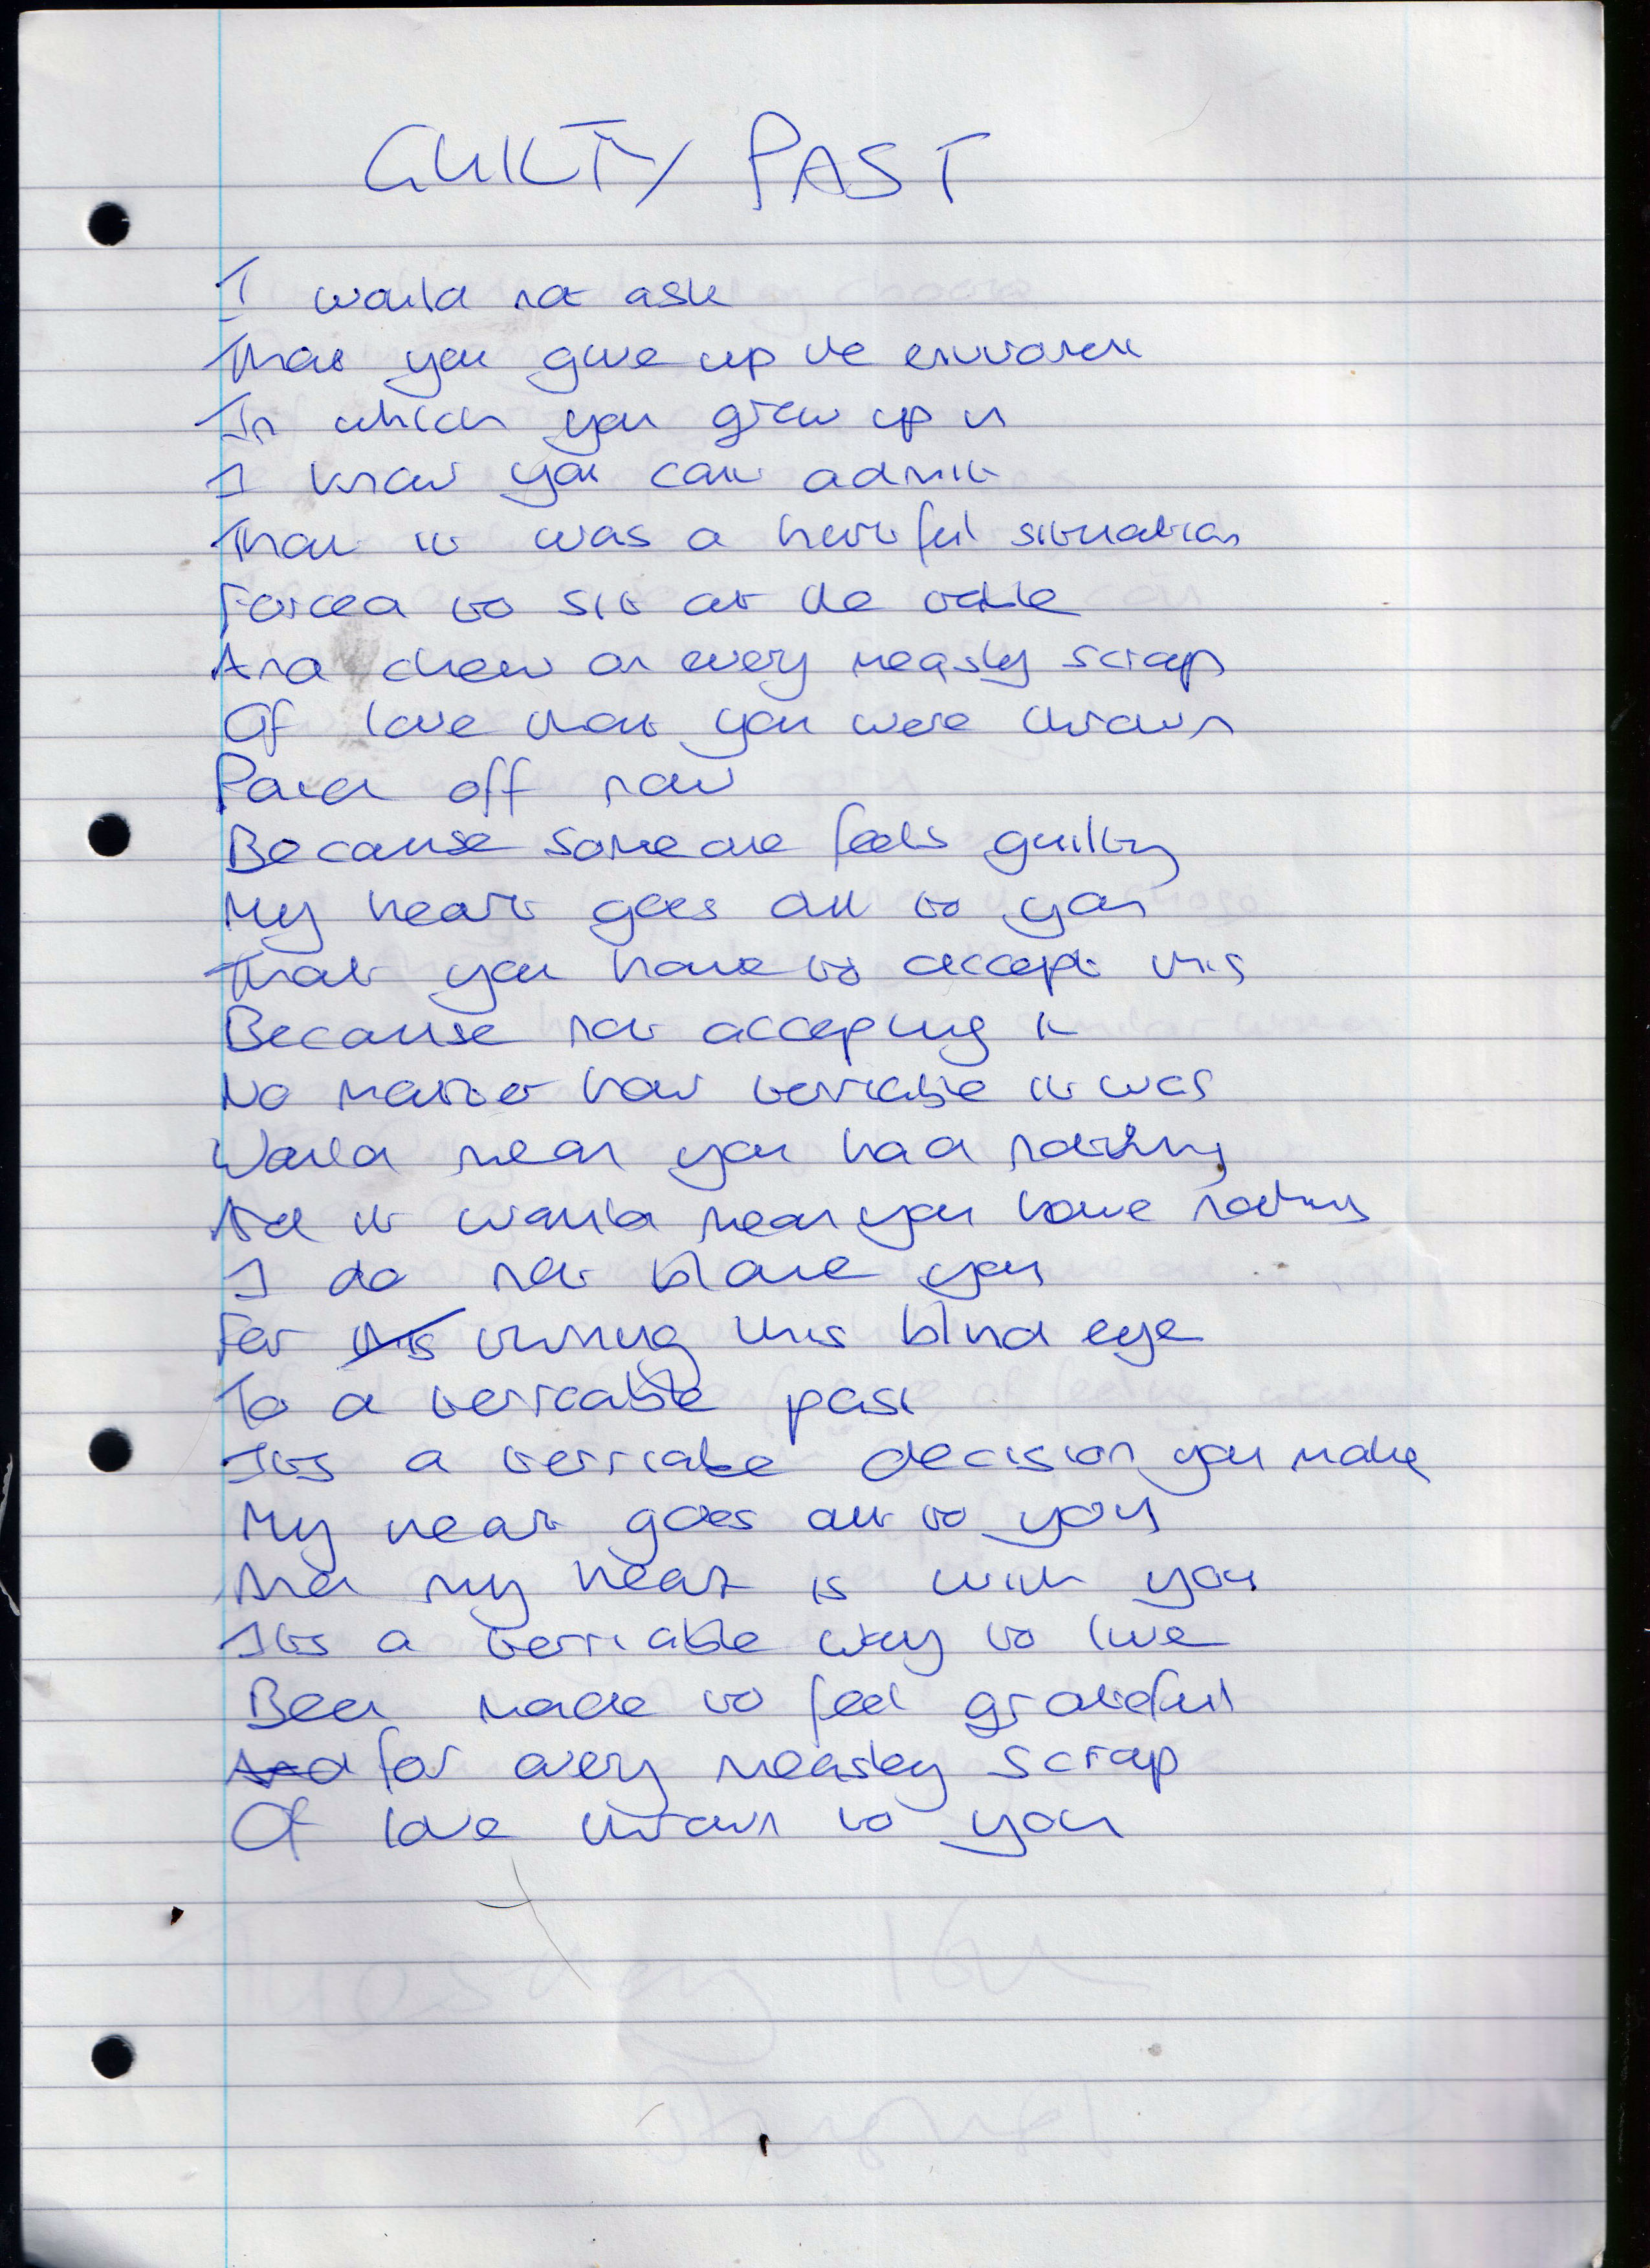 GUILTY PAST
I would not ask
That you give up the enviroment
In which you grew up in
I know you can admit
That it was a hurtful situation
Forced to sit at the table
And chew on every measly scrap
Of love that you were thrown
Paid off now
Because someone feels guilty
My heart goes out to you
That you have to accept this
Because not accepting it
No matter how terriable it was
Would mean you had nothing
And it would mean you have nothing
I do not blame you
For this turning this blind eye
To a terriable past
Its a terriable decision you make
My heart goes out to you
And my heart is with you
Its a terriable way to live
Been made to feel grateful
And for every measley scrap
Of love thrown to you